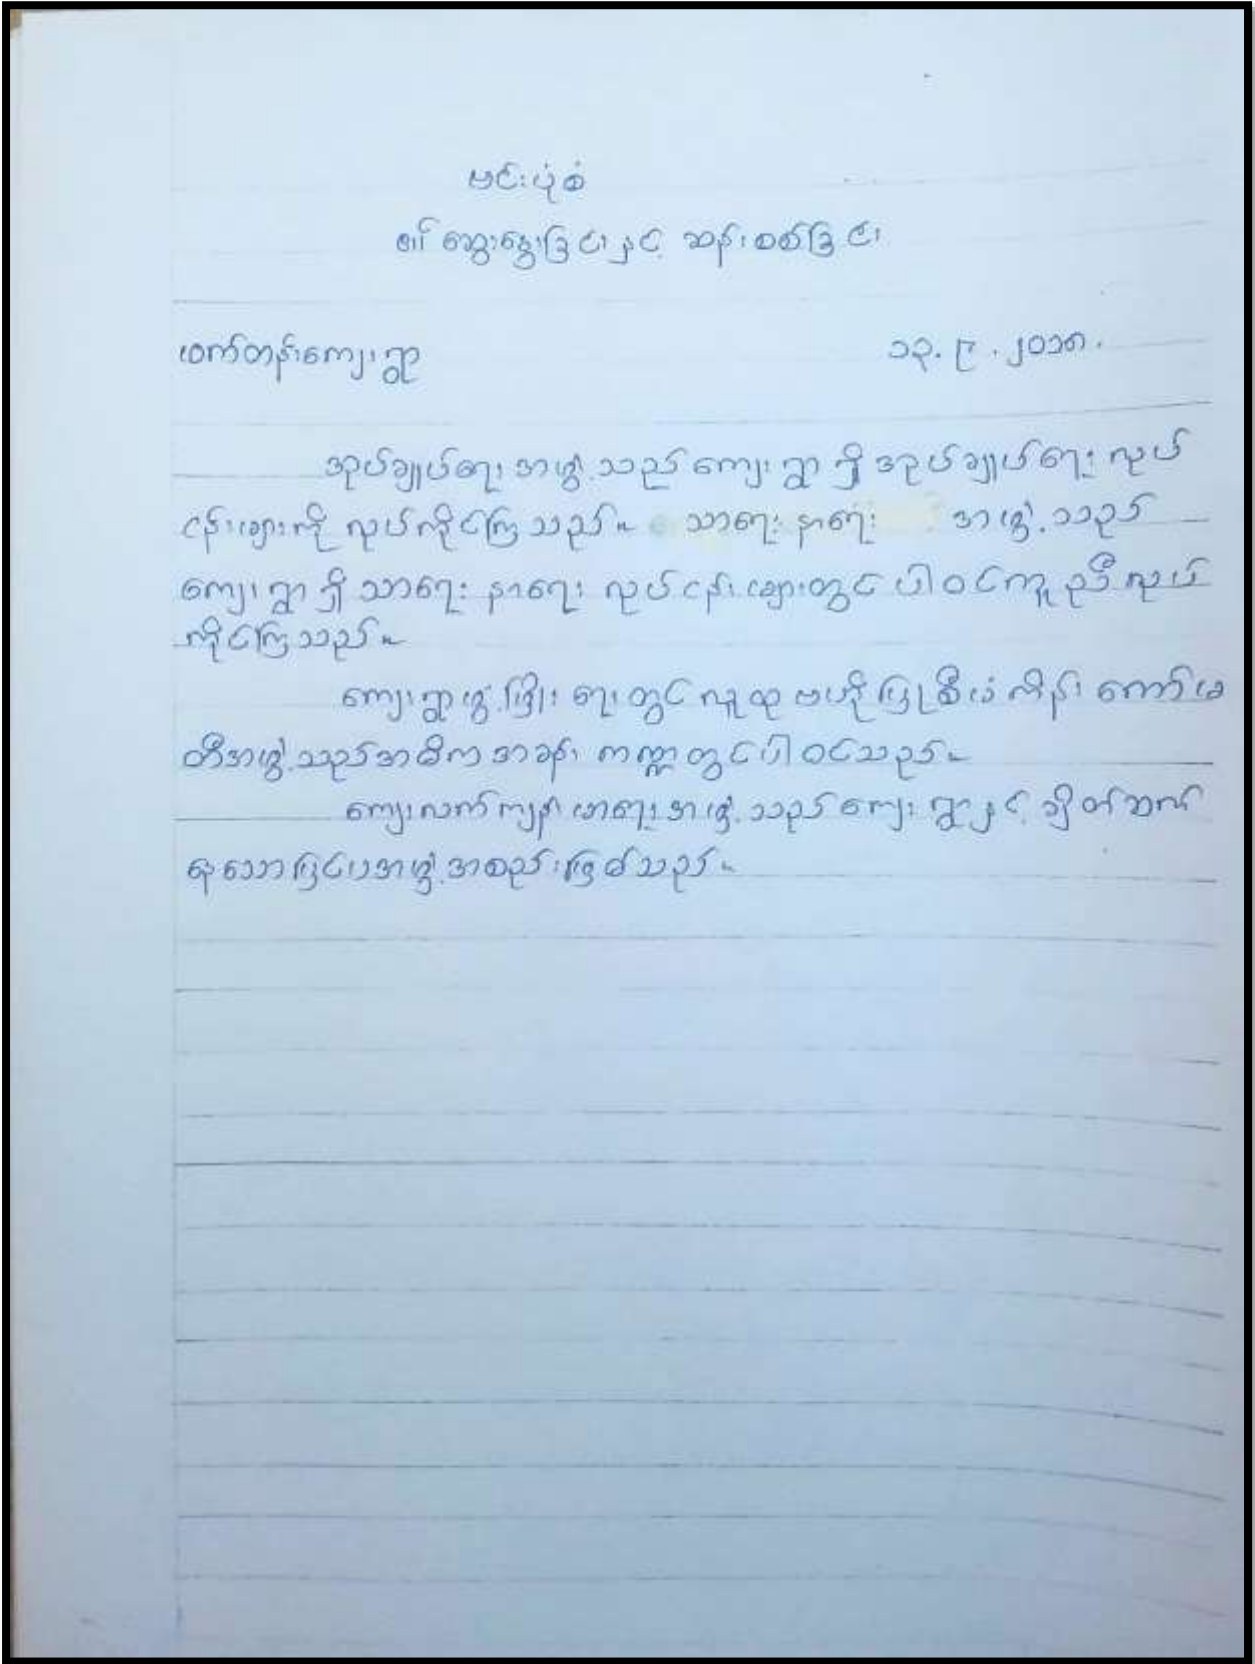 ဗင်းပုံစံ
၏ ဆွေးနွေးခြင်းနှင့် ဆန်းစစ်ခြင်း
ဖက်တန်းကျေးရွာ ၁၃.၉.၂၀၁၈.
အုပ်ချုပ်ရေးအဖွဲ့သည် ကျေးရွာရှိ အုပ်ချုပ်ရေး လုပ်
ငန်းများကို လုပ်ကိုင်ကြသည်။ သာရေးနာရေး အဖွဲ့သည်
ကျေးရွာရှိ သာရေးနာရေး လုပ်ငန်းများတွင် ပါဝင်ကူညီလုပ်
ကိုင်ကြသည်။
ကျေးရွာဖွံ့ဖြိုးရေးတွင် လူထုဗဟိုပြုစီမံကိန်း ကော်မ
တီအဖွဲ့သည်အဓိကအခန်းကဏ္ဍတွင်ပါဝင်သည်။
ကျေးလက်ကျန်းမာရေးအဖွဲ့သည်ကျေးရွာနှင့် ချိတ်ဆက်
နေသောပြင်ပအဖွဲ့အစည်းဖြစ်သည်။